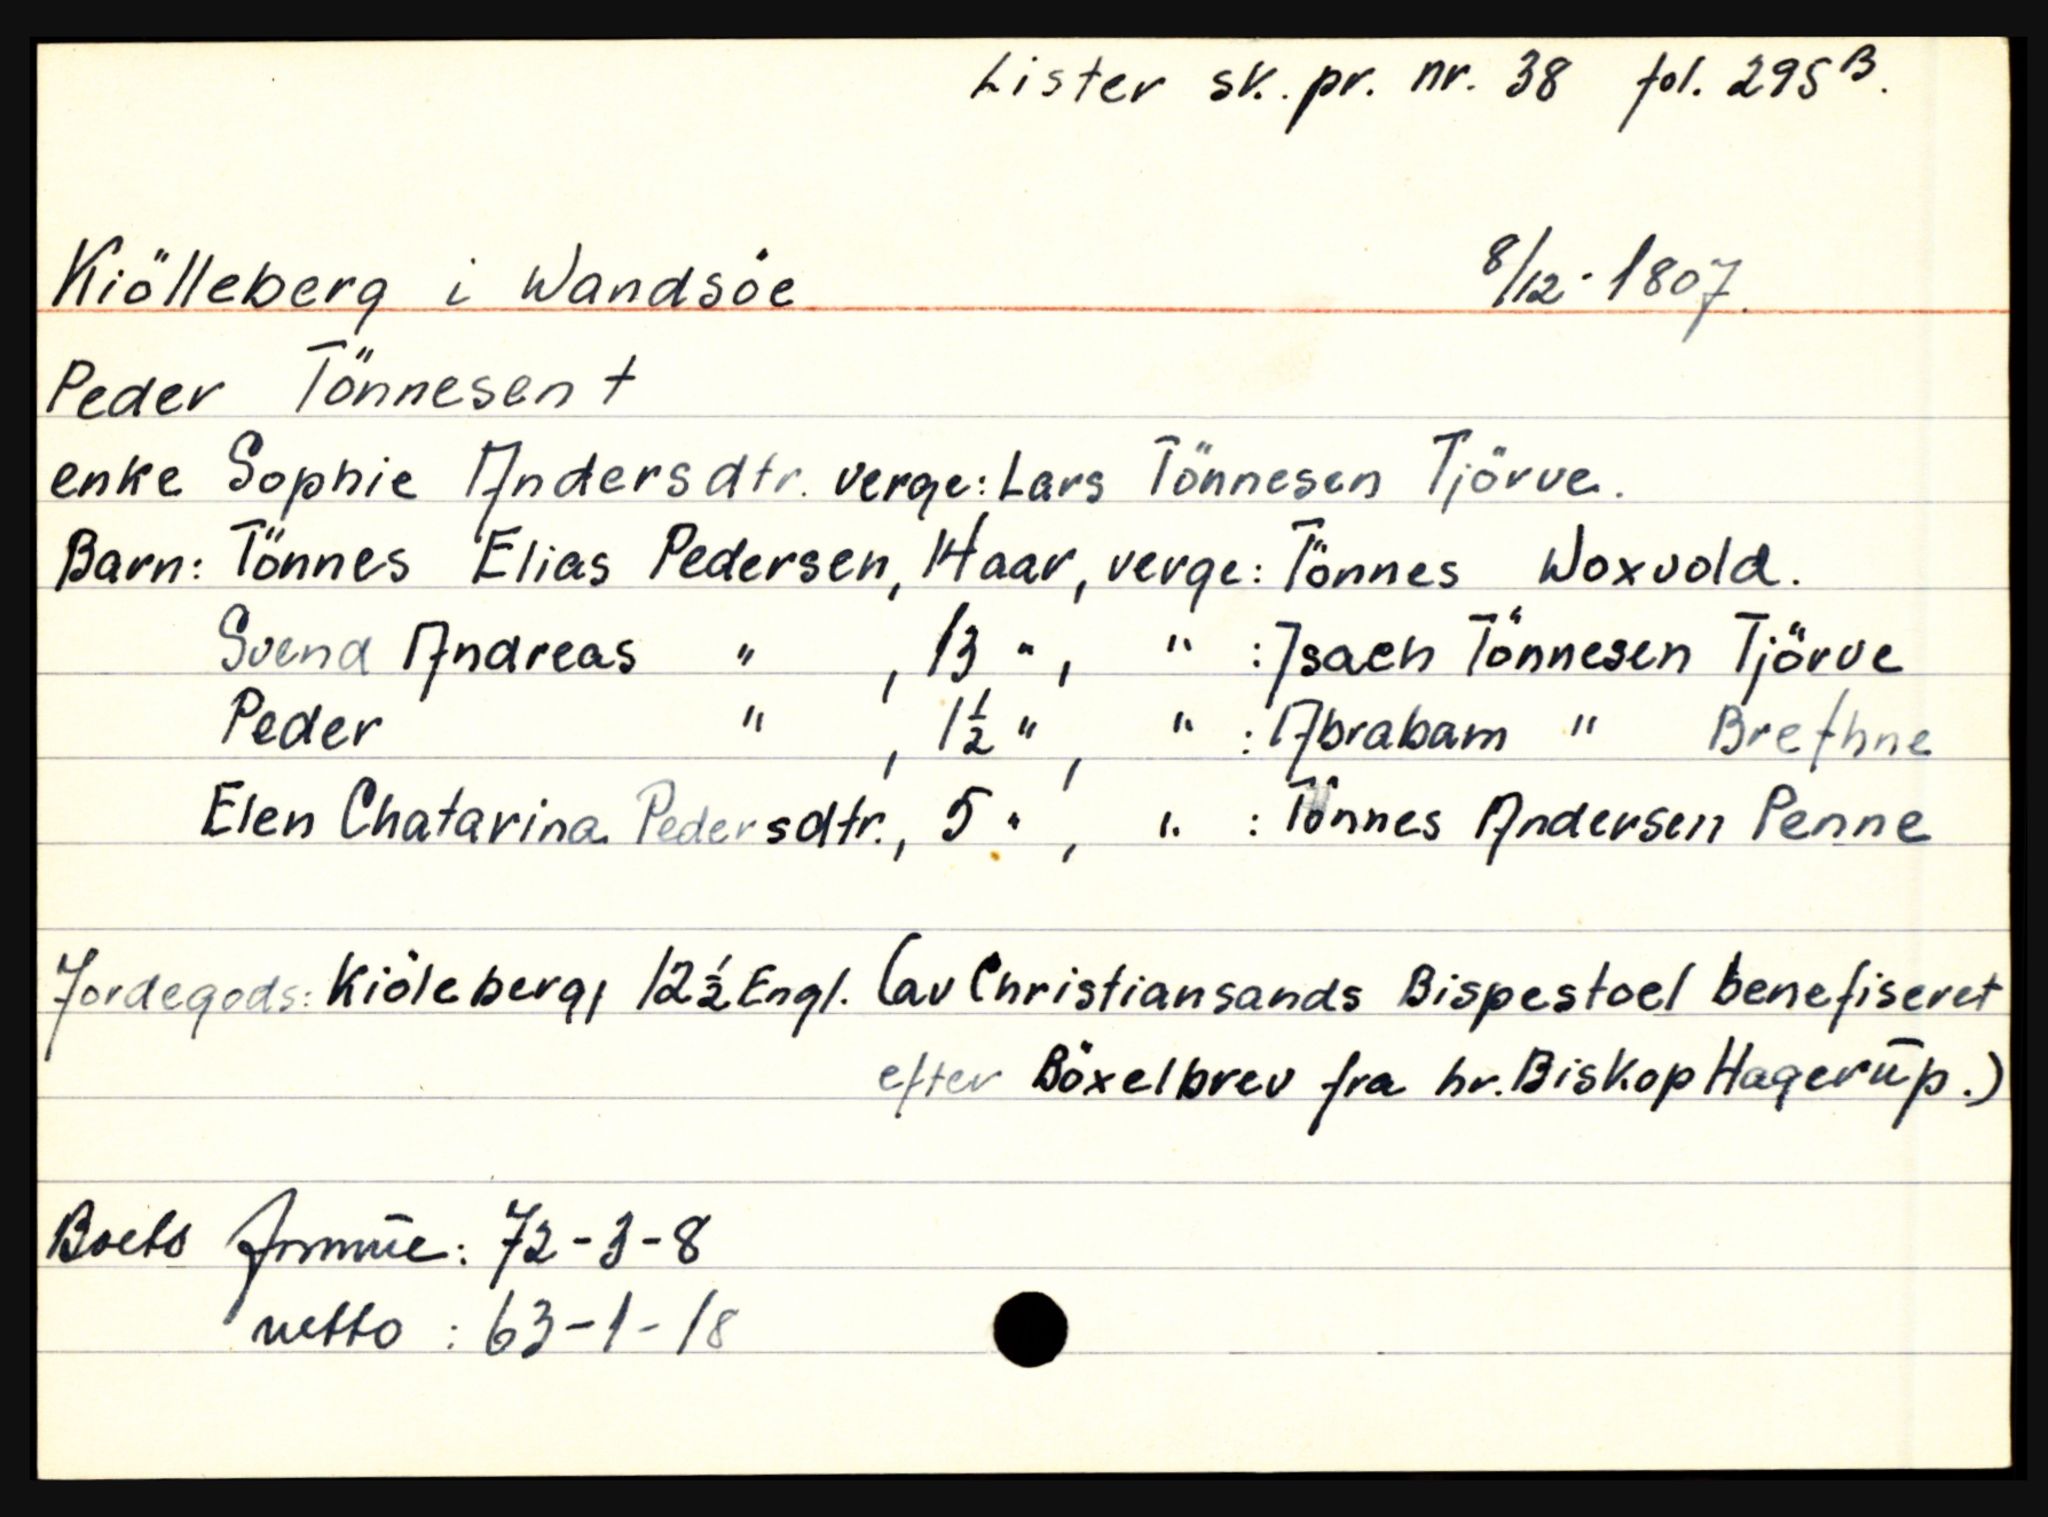 Lister sk. pr. nr. 38 fol. 295 B.
Kiölleberg i Wandsöe 8/12-1807.
Peder Tönnesen †
enke Sophie Andersdtr. verge: Lars Tönnesen Tjörve.
Barn: Tönnes Elias Pedersen, 14 aar, verge: Tönnes Woxvold.
Svend Andreas " , 13 " , " : Isach Tönnesen Tjörve
Peder " , 1½ " , " : Abraham " Brethne
Elen Chatarina Pedersdtr., 5 " , " : Tönnes Andersen Penne
Jordegods: Kiöleberg, 12½ Engl. (av Christiansands Bispestoel benefiseret
efter Böxelbrev fra hr. Biskop Hagerūp.)
Boets Formūe: 72-3-8
netto : 63-1-18